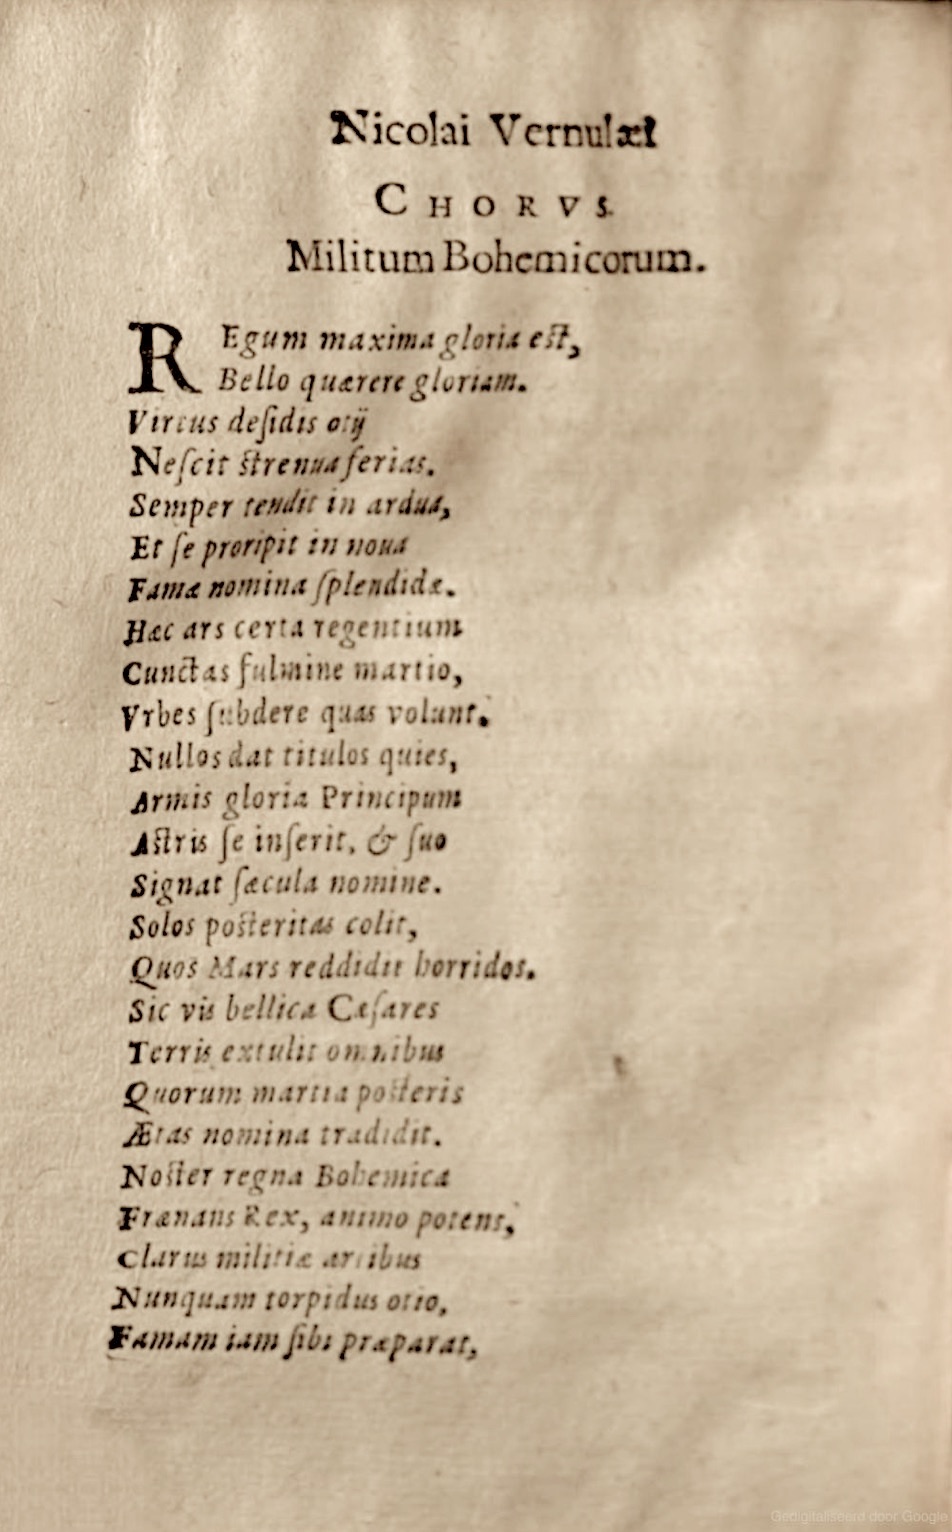 Nicolai Vernulæi
CHORVS.
Militum Bohemicorum.
REgum maxima gloria est,
Bello quærere gloriam.
Virtus desidis otij
Nescit strenua ferias.
Semper tendit in ardua,
Et se proripit in noua
Famæ nomina splendidæ.
Hæc ars certa regentium
Cunctas fulmine martio,
Vrbes subdere quas volunt.
Nullos dat titulos quies,
Armis gloria Principum
Astris se inserit, & suo
Signat sæcula nomine.
Solos posteritas colit,
Quos Mars reddidit horridos.
Sic vis bellica Cæsares
Terris extulit omnibus
Quorum martia posteris
Ætas nomina tradidit.
Noster regna Bohemica
Frænans Rex, animo potens,
Clarus militiæ artibus
Nunquam torpidus otio,
Famam iam sibi præparat,
Gedigitaliseerd door Google